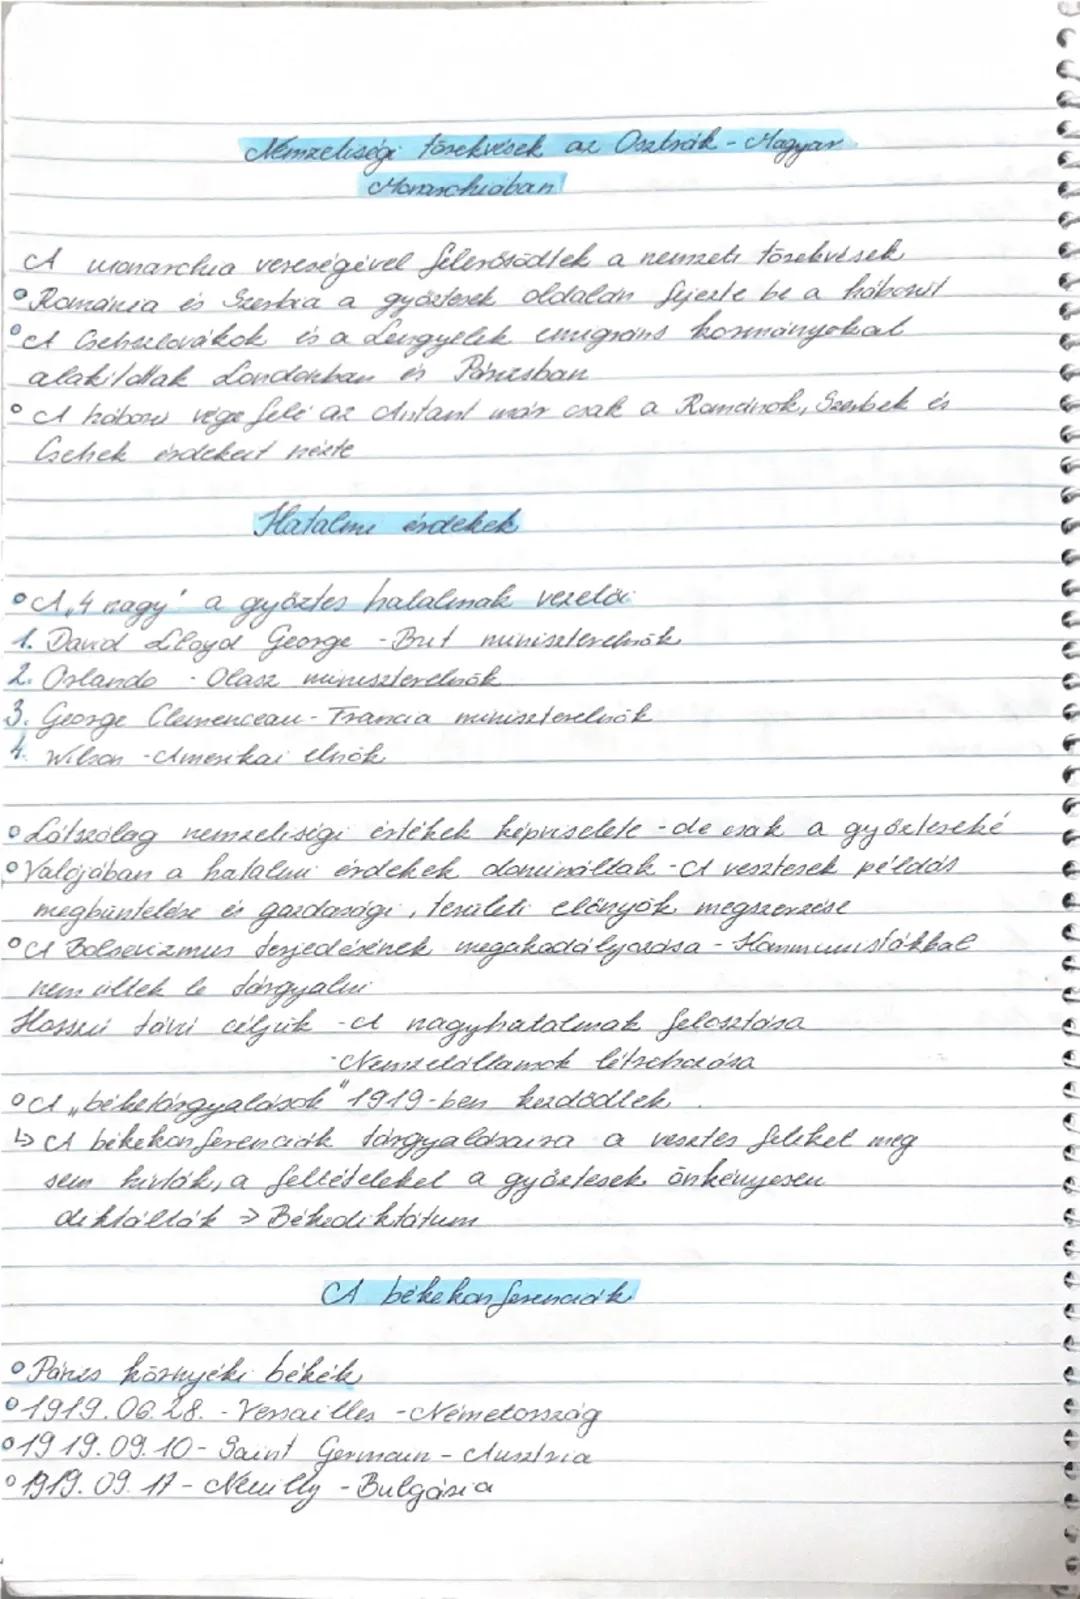 Nemzetiségi törekvések az Osztrák - Magyar
Monarchiában
A monarchia vereségével felerősödtek a nemzeti törekvések
Románia és Szerbia a győztesek oldalán fejezte be a háborút
A Csehszlovákok és a Lengyelek emigráns kormányokat
alakítottak Londonban és Párizsban
A háború vége felé az Antant már csak a Románok, Szerbek és
Csehek érdekeit nézte
Hatalmi érdekek
A „4 nagy" a győztes hatalmak vezetői
1. David Lloyd George - Brit miniszterelnök
2. Orlando - Olasz miniszterelnök
3. George Clemenceau - Francia miniszterelnök
4. Wilson - Amerikai elnök
Látszólag nemzetiségi értékek képviselete - de csak a győzteseké
Valójában a hatalmi érdekek domináltak - A vesztesek példás
megbüntetése és gazdasági, területi előnyök megszerzése
A Bolsevizmus terjedésének megakadályozása - Kommunistákkal
nem ültek le tárgyalni
Hosszú távú céljuk - A nagyhatalmak felosztása
- Nemzetállamok létrehozása
A „béketárgyalások" 1919-ben kezdődtek.
↳ A békekonferenciák tárgyalásaira a vesztes feleket meg
sem hívták, a feltételeket a győztesek önkényesen
diktálták ⇒ Békediktátum
A békekonferenciák
Párizs környéki békék
1919.06.28. - Versailles - Németország
1919.09.10 - Saint Germain - Ausztria
1919.09.17 - Neuilly - Bulgária